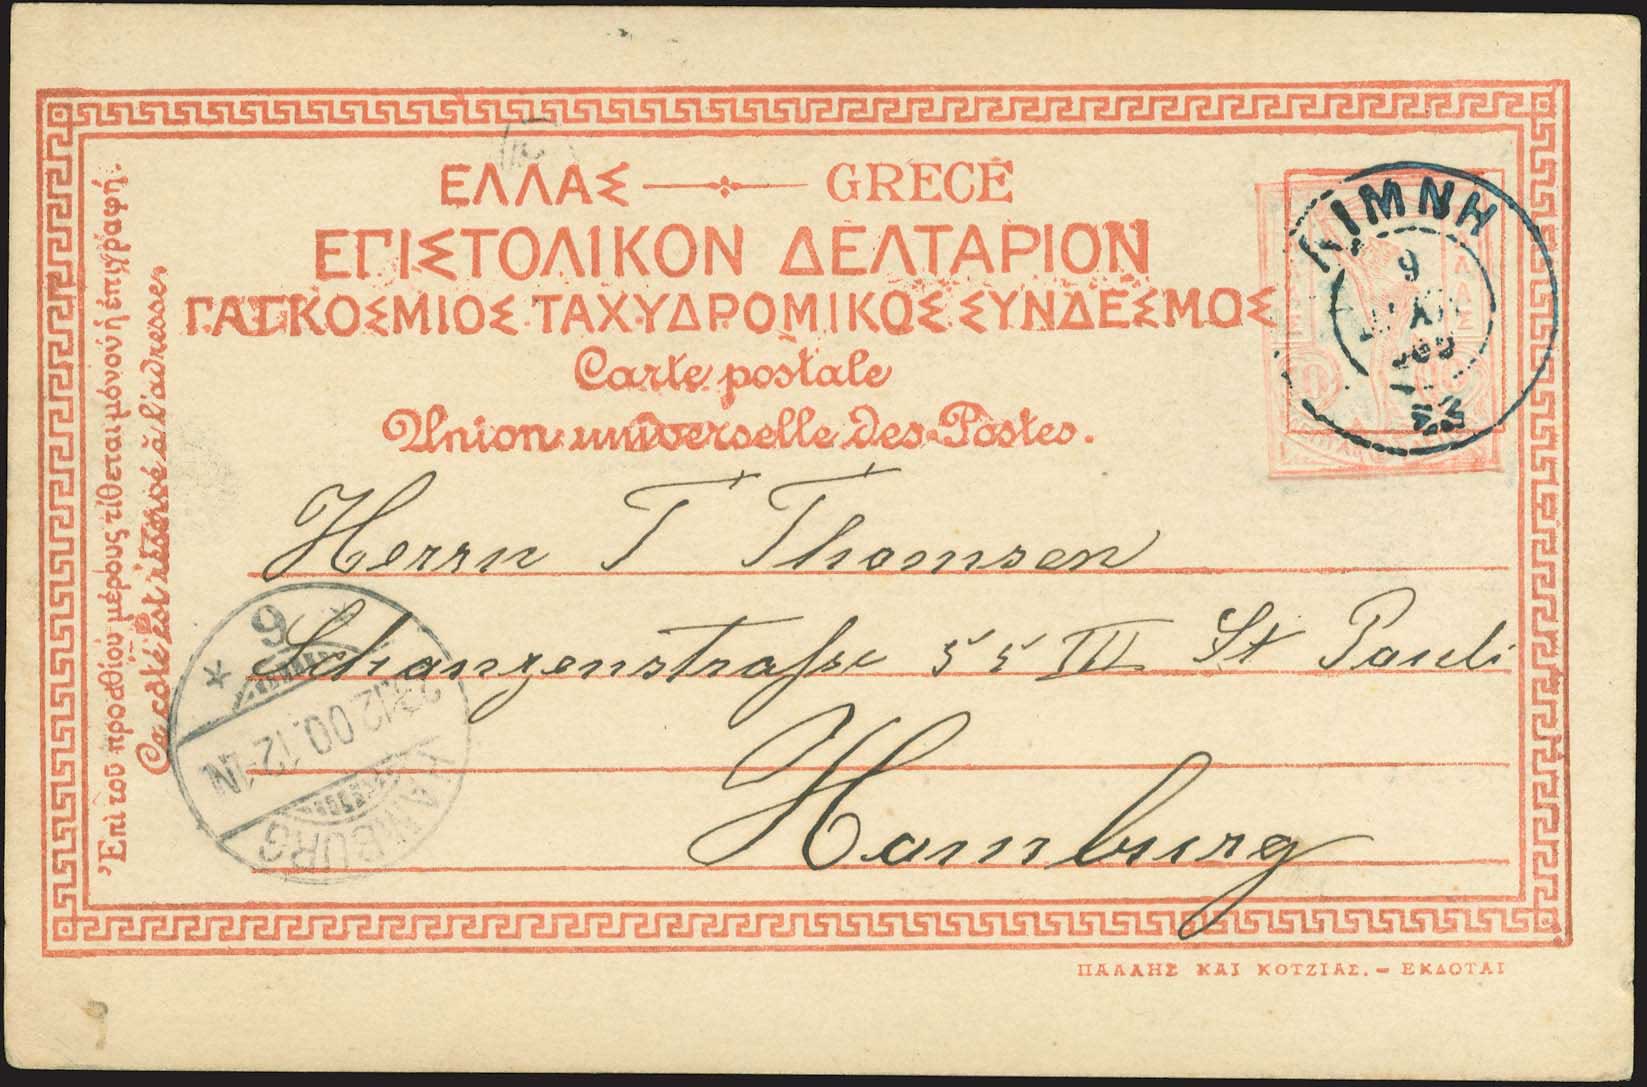 ΕΛΛΑΣ GRÈCE
ΕΠΙΣΤΟΛΙΚΟΝ ΔΕΛΤΑΡΙΟΝ
ΠΑΓΚΟΣΜΙΟΣ ΤΑΧΥΔΡΟΜΙΚΟΣ ΣΥΝΔΕΣΜΟΣ
Carte postale
Union universelle des Postes.
ΛΙΜΝΗ
9
Herrn T Thomsen
Schanzenstraße 55 III St Pauli
Hamburg
HAMBURG
23.12.00.12-1N
* 6 *
Ἐπὶ τοῦ προσθίου μέρους τίθεται μόνον ἡ ἐπιγραφή.
Ce côté est réservé à l'adresse.
ΠΑΛΛΗΣ ΚΑΙ ΚΟΤΖΙΑΣ. - ΕΚΔΟΤΑΙ